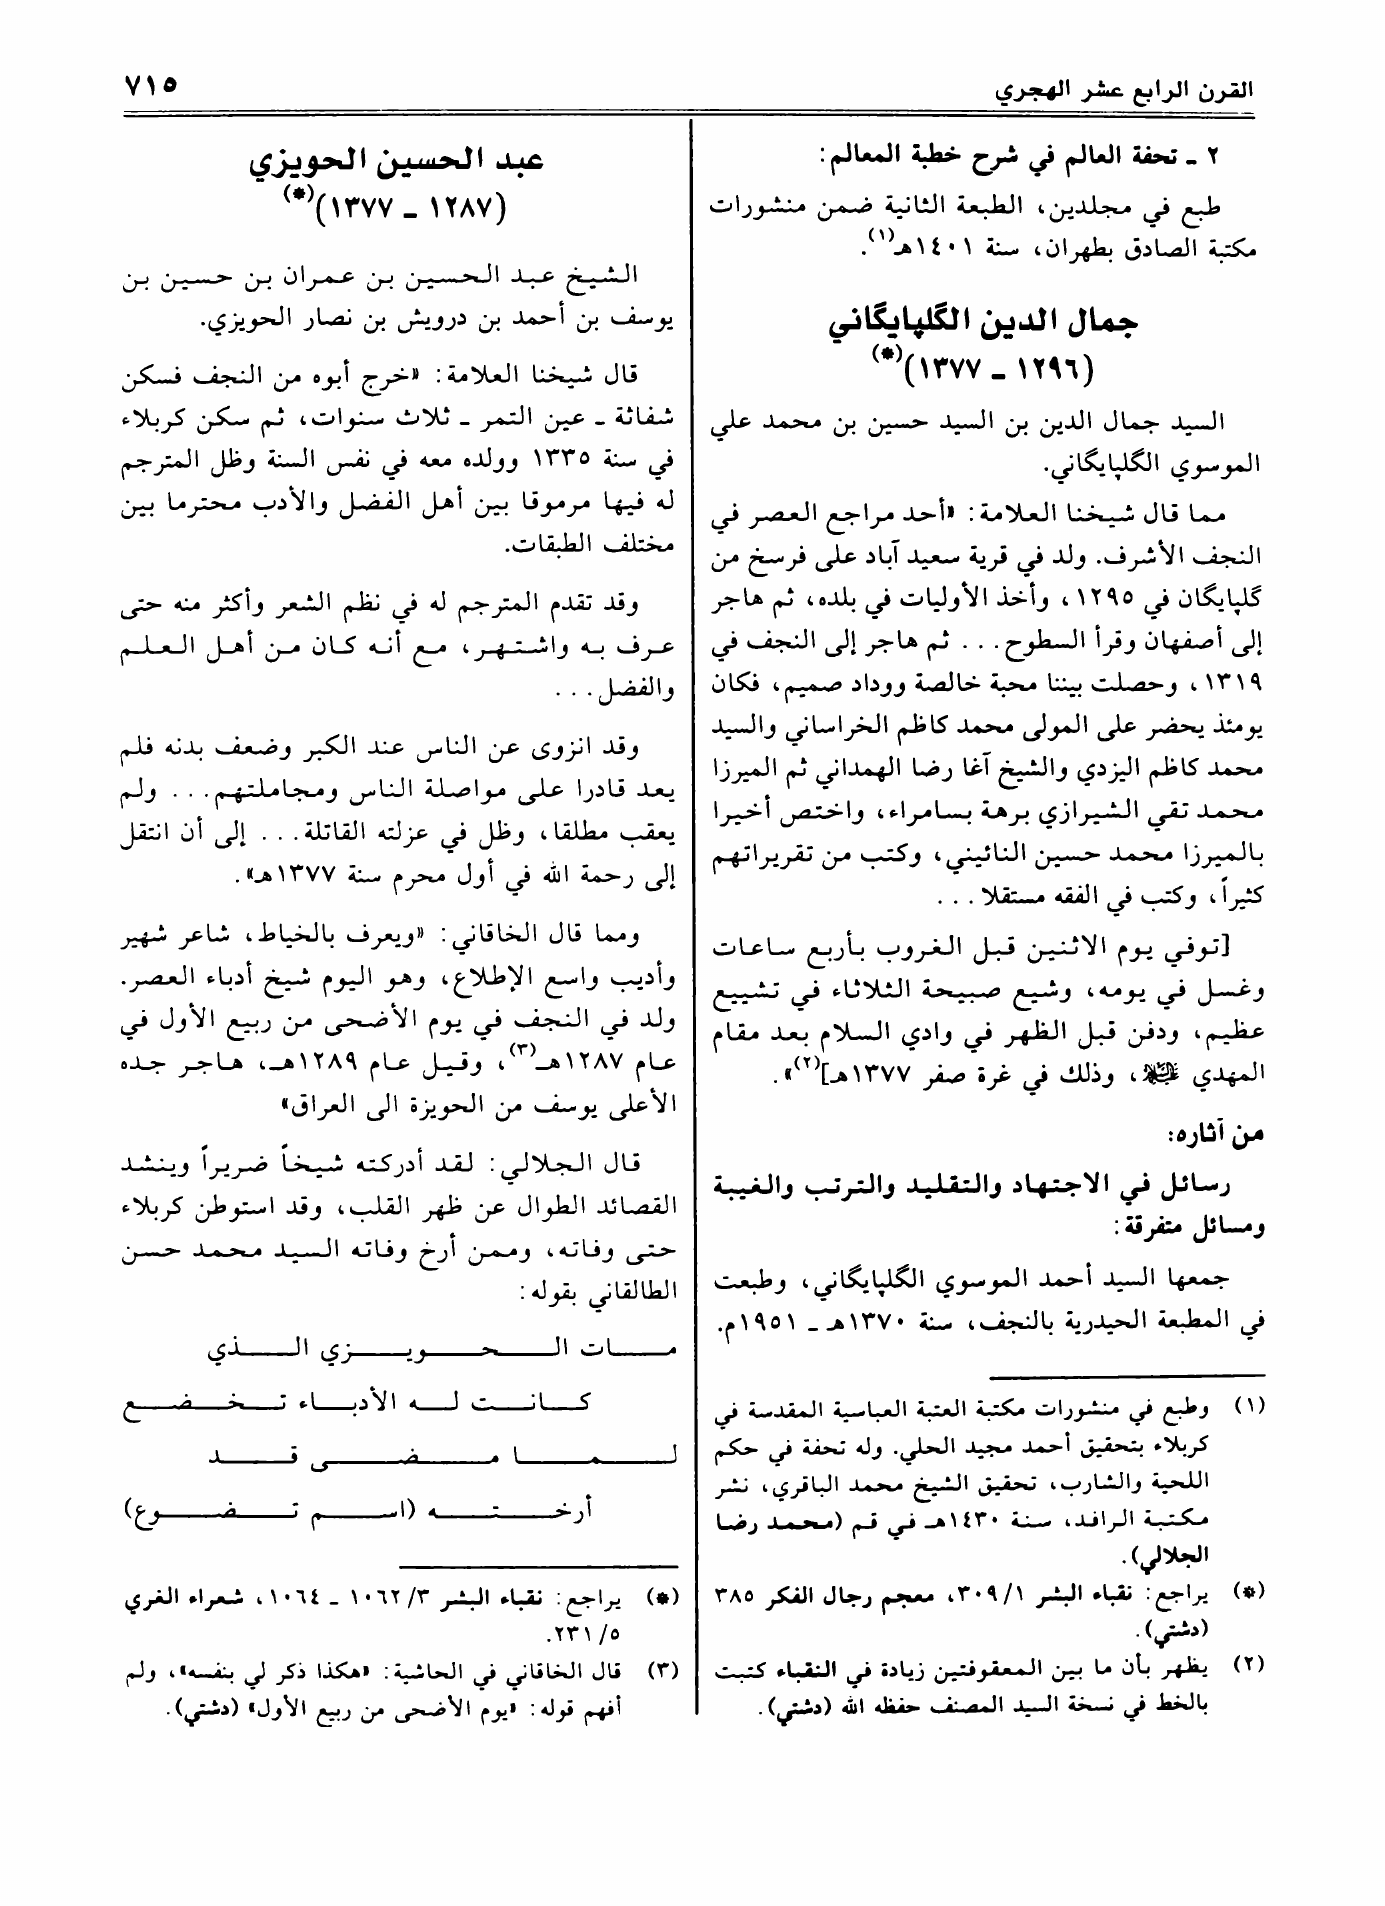 القرن الرابع عشر الهجري
٧١٥
٢ ـ تحفة العالم في شرح خطبة المعالم:
طبع في مجلدين، الطبعة الثانية ضمن منشورات
مكتبة الصادق بطهران، سنة ١٤٠١هـ(١).
جمال الدين الگلپايگاني
(١٢٩٦ ـ ١٣٧٧)(*)
السيد جمال الدين بن السيد حسين بن محمد علي
الموسوي الگلپايگاني.
مما قال شيخنا العلامة: «أحد مراجع العصر في
النجف الأشرف. ولد في قرية سعيد آباد على فرسخ من
گلپايگان في ١٢٩٥، وأخذ الأوليات في بلده، ثم هاجر
إلى أصفهان وقرأ السطوح... ثم هاجر إلى النجف في
١٣١٩، وحصلت بيننا محبة خالصة ووداد صميم، فكان
يومئذ يحضر على المولى محمد كاظم الخراساني والسيد
محمد كاظم اليزدي والشيخ آغا رضا الهمداني ثم الميرزا
محمد تقي الشيرازي برهة بسامراء، واختص أخيرا
بالميرزا محمد حسين النائيني، وكتب من تقريراتهم
كثيراً، وكتب في الفقه مستقلا...
[توفي يوم الاثنين قبل الغروب بأربع ساعات
وغسل في يومه، وشيع صبيحة الثلاثاء في تشييع
عظيم، ودفن قبل الظهر في وادي السلام بعد مقام
المهدي ، وذلك في غرة صفر ١٣٧٧هـ](٢)».
من آثاره:
رسائل في الاجتهاد والتقليد والترتب والغيبة
ومسائل متفرقة:
جمعها السيد أحمد الموسوي الگلپايگاني، وطبعت
في المطبعة الحيدرية بالنجف، سنة ١٣٧٠هـ ـ ١٩٥١م.
(١) وطبع في منشورات مكتبة العتبة العباسية المقدسة في
كربلاء بتحقيق أحمد مجيد الحلي. وله تحفة في حكم
اللحية والشارب، تحقيق الشيخ محمد الباقري، نشر
مكتبة الرافد، سنة ١٤٣٠هـ في قم (محمد رضا
الجلالي).
(*) يراجع: نقباء البشر ٣٠٩/١، معجم رجال الفكر ٣٨٥
(دشتي).
(٢) يظهر بأن ما بين المعقوفتين زيادة في النقباء كتبت
بالخط في نسخة السيد المصنف حفظه الله (دشتي).
عبد الحسين الحويزي
(١٢٨٧ ـ ١٣٧٧)(*)
الشيخ عبد الحسين بن عمران بن حسين بن
يوسف بن أحمد بن درويش بن نصار الحويزي.
قال شيخنا العلامة: «خرج أبوه من النجف فسكن
شفاثة ـ عين التمر ـ ثلاث سنوات، ثم سكن كربلاء
في سنة ١٣٣٥ وولده معه في نفس السنة وظل المترجم
له فيها مرموقا بين أهل الفضل والأدب محترما بين
مختلف الطبقات.
وقد تقدم المترجم له في نظم الشعر وأكثر منه حتى
عرف به واشتهر، مع أنه كان من أهل العلم
والفضل...
وقد انزوى عن الناس عند الكبر وضعف بدنه فلم
يعد قادرا على مواصلة الناس ومجاملتهم... ولم
يعقب مطلقا، وظل في عزلته القاتلة... إلى أن انتقل
إلى رحمة الله في أول محرم سنة ١٣٧٧هـ».
ومما قال الخاقاني: «ويعرف بالخياط، شاعر شهير
وأديب واسع الإطلاع، وهو اليوم شيخ أدباء العصر.
ولد في النجف في يوم الأضحى من ربيع الأول في
عام ١٢٨٧هـ(٣)، وقيل عام ١٢٨٩هـ، هاجر جده
الأعلى يوسف من الحويزة الى العراق»
قال الجلالي: لقد أدركته شيخاً ضريراً وينشد
القصائد الطوال عن ظهر القلب، وقد استوطن كربلاء
حتى وفاته، وممن أرخ وفاته السيد محمد حسن
الطالقاني بقوله:
مات الحويزي الذي
كانت له الأدباء تخضع
لما مضى قد
أرخته (اسم تضوع)
(*) يراجع: نقباء البشر ١٠٦٢/٣ ـ ١٠٦٤، شعراء الغري
٢٣١/٥.
(٣) قال الخاقاني في الحاشية: «هكذا ذكر لي بنفسه»، ولم
أفهم قوله: «يوم الأضحى من ربيع الأول» (دشتي).